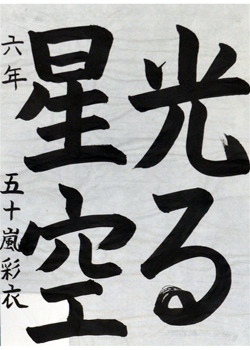 光る
星空
六年 五十嵐彩衣